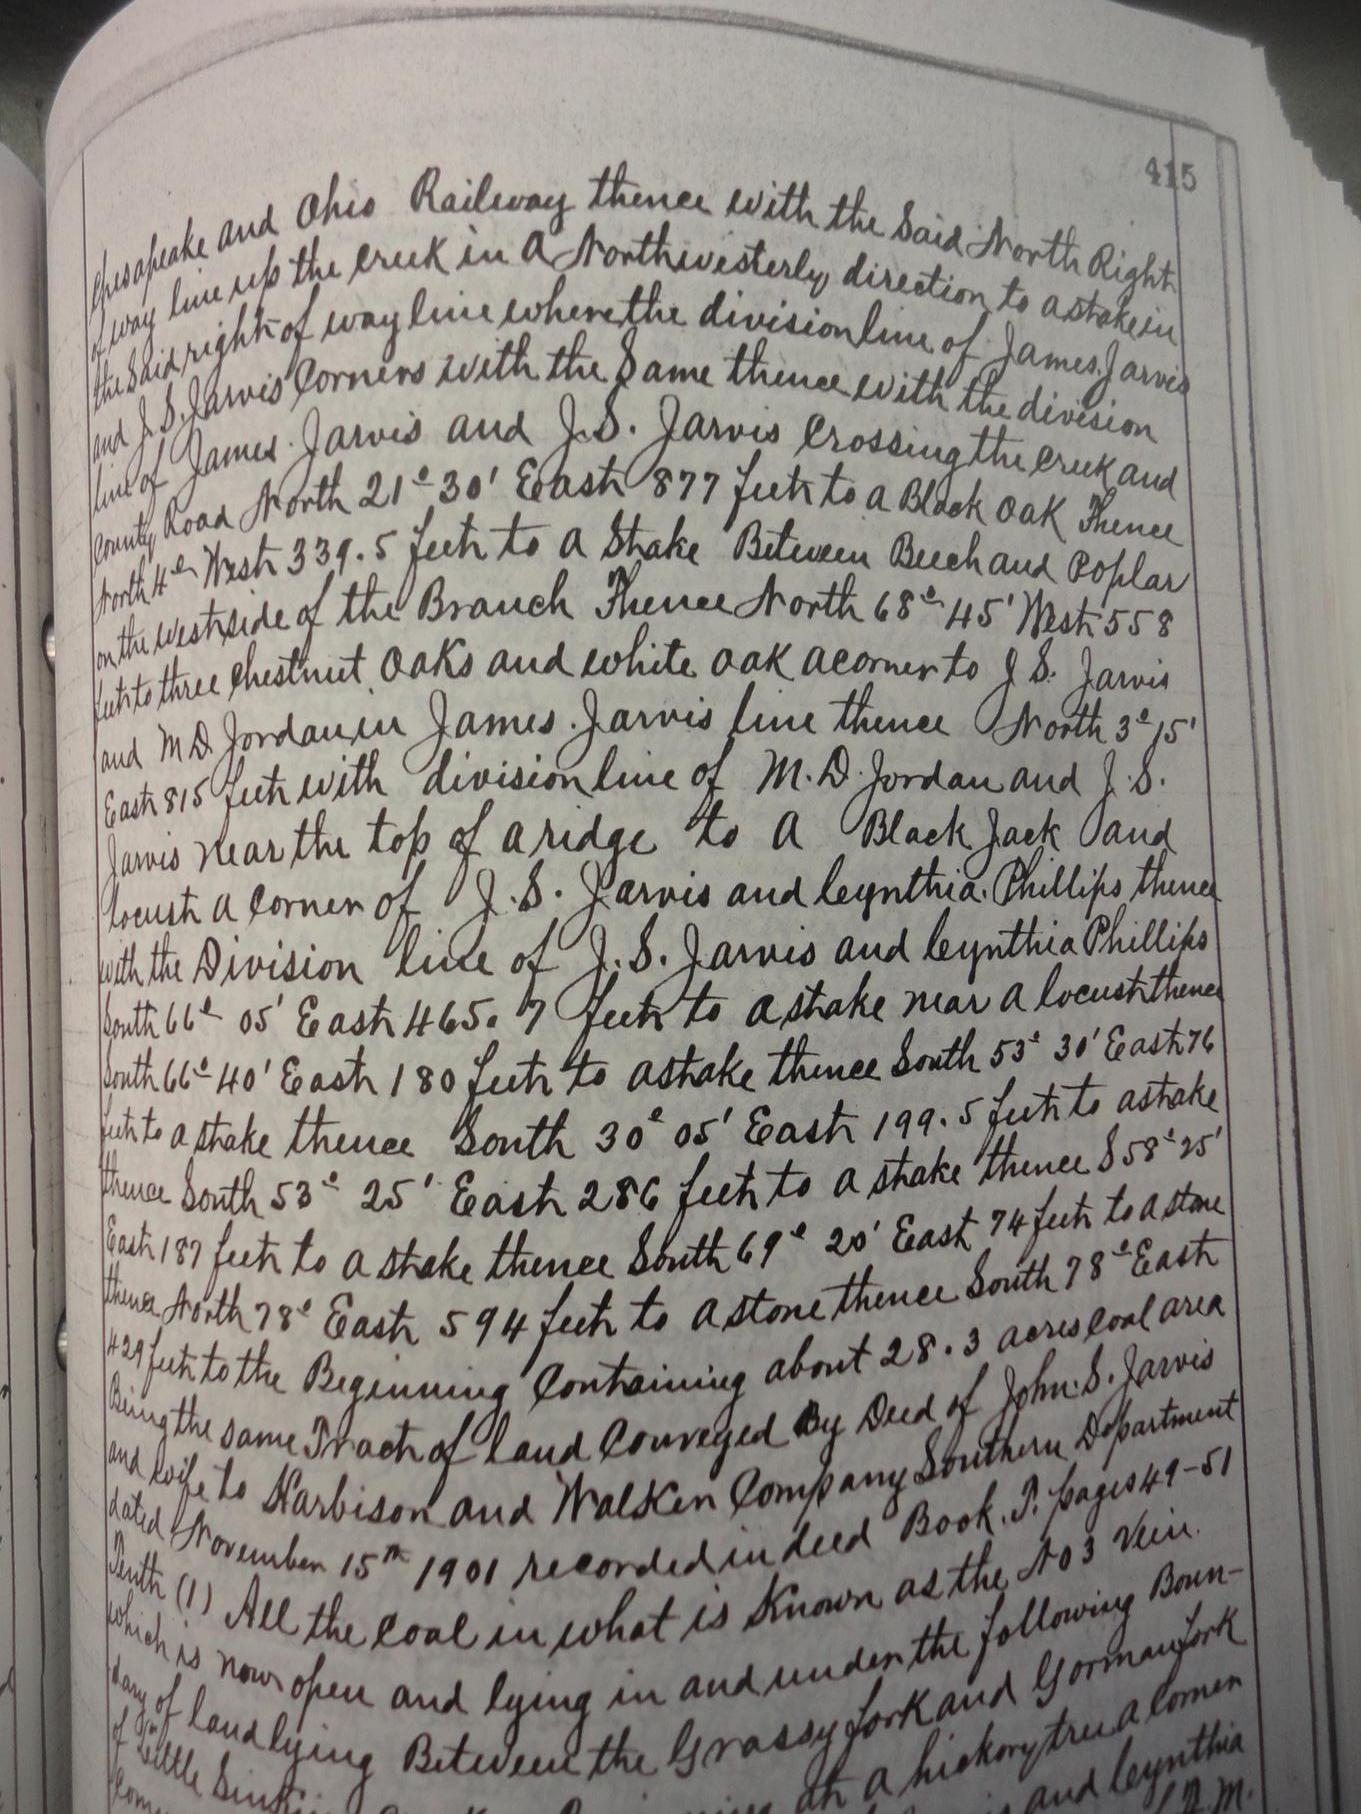 415
Chesapeake and Ohio Railway thence with the Said North Right
of way line up the creek in a Northwesterly direction to a stake in
the Said right of way line where the division line of James Jarvis
and J.S. Jarvis Corners with the Same thence with the division
line of James Jarvis and J.S. Jarvis Crossing the creek and
County Road North 21° 30' East 877 feet to a Black Oak Thence
North 4° West 339.5 feet to a Stake Between Beech and Poplar
on the west side of the Branch Thence North 68° 45' West 558
feet to three Chestnut Oaks and white oak a corner to J S. Jarvis
and M D. Jordan in James Jarvis line thence North 3° 15'
East 815 feet with division line of M. D. Jordan and J. S.
Jarvis near the top of a ridge to a Black Jack and
locust a corner of J. S. Jarvis and Cynthia Phillips, thence
with the Division line of J. S. Jarvis and Cynthia Phillips
South 66° 05' East 465.7 feet to a stake near a locust thence
South 66° 40' East 180 feet to a stake thence South 53° 30' East 76
feet to a stake thence South 30° 05' East 199.5 feet to a stake
thence South 53° 25' East 286 feet to a stake thence S 58° 25'
East 187 feet to a stake thence South 69° 20' East 74 feet to a stone
thence North 78° East 594 feet to a stone thence South 78° East
429 feet to the Beginning Containing about 28.3 acres coal area
Being the same Tract of land Conveyed By Deed of John. S. Jarvis
and wife to Harbison and Walker Company Southern Department
dated November 15th 1901 recorded in deed Book. P. pages 49-51
Tenth (1) All the Coal in what is Known as the No 3 Vein.
which is now open and lying in and under the following Boun-
dary of land lying Between the Grassy fork and Gorman fork
of Little at a hickory tree a corner
and Cynthia